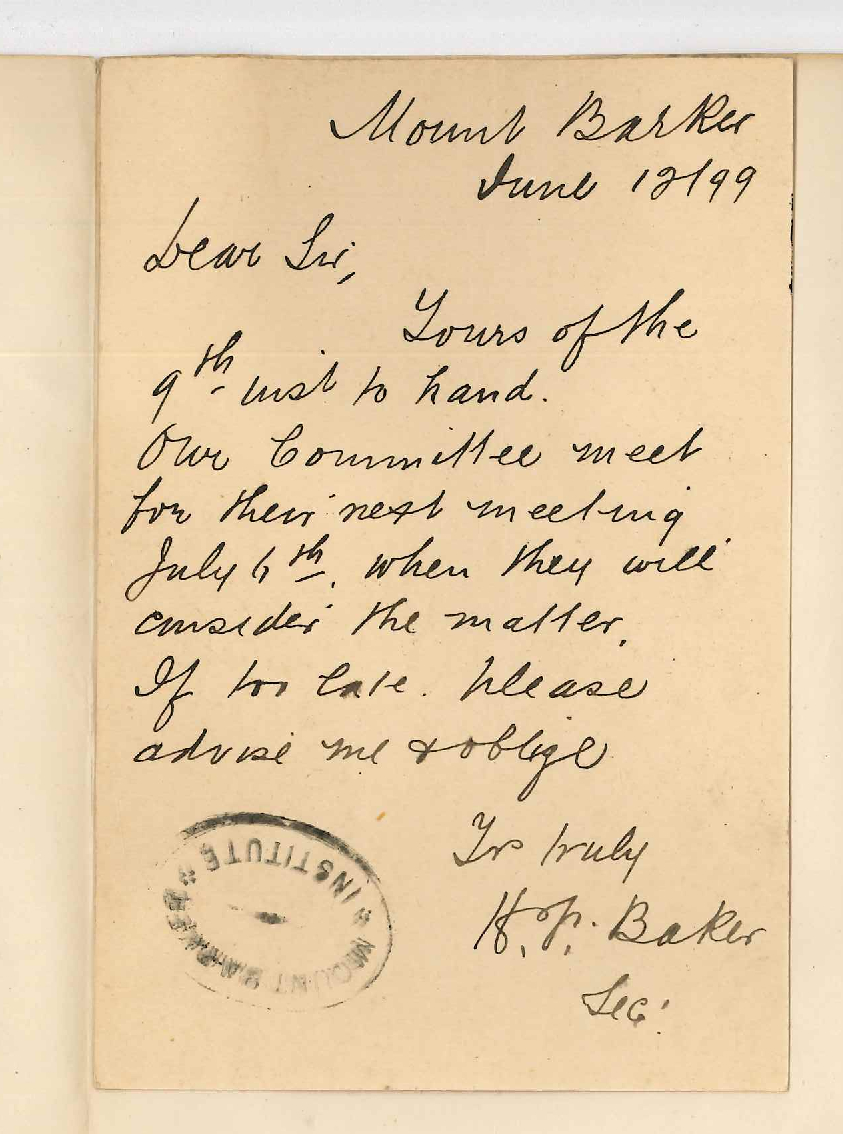 Mount Barker
June 12/99
Dear Sir,
Yours of the
9th inst to hand.
Our Committee meet
for their next meeting
July 6th. when they will
consider the matter.
If too late. please
advise me & oblige
Yrs truly
H. P. Baker
Sec.
* MOUNT BARKER * INSTITUTE